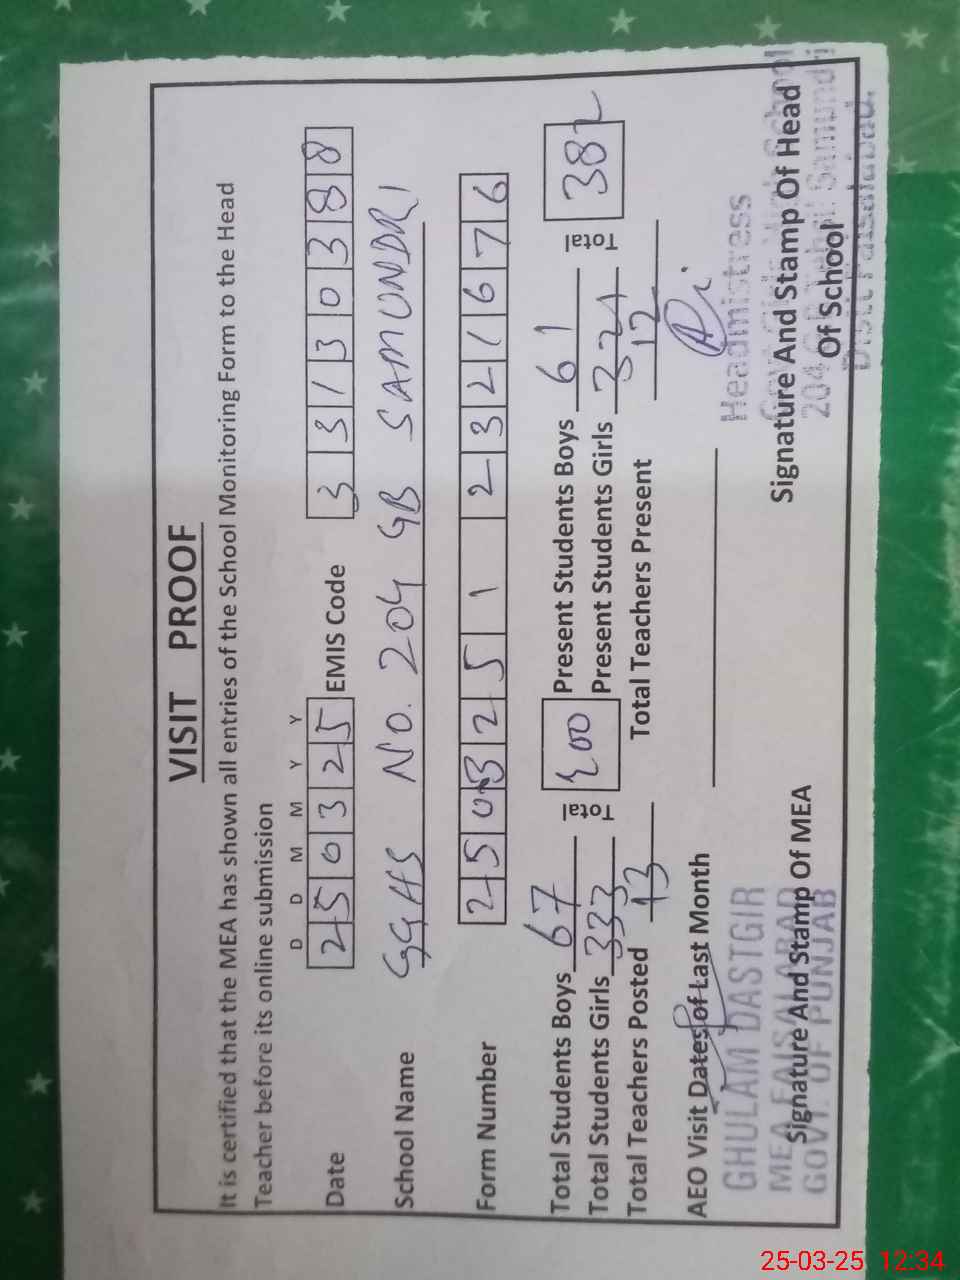 VISIT PROOF
It is certified that the MEA has shown all entries of the School Monitoring Form to the Head
Teacher before its online submission
D D M M Y Y
Date 250325 EMIS Code 33130388
School Name GGHS NO. 204 GB SAMUNDRI
Form Number 250325 1 2321676
Total Students Boys 67 Total 400 Present Students Boys 61 Total 382
Total Students Girls 333 Present Students Girls 321
Total Teachers Posted 13 Total Teachers Present 12
AEO Visit Dates of Last Month
GHULAM DASTGIR
MEA FAISALABAD
GOVT. OF PUNJAB
Signature And Stamp Of MEA
Headmistress
Govt. Girls High School
204 G.B Samundri
Distt Faisalabad.
Signature And Stamp Of Head
Of School
25-03-25 12:34